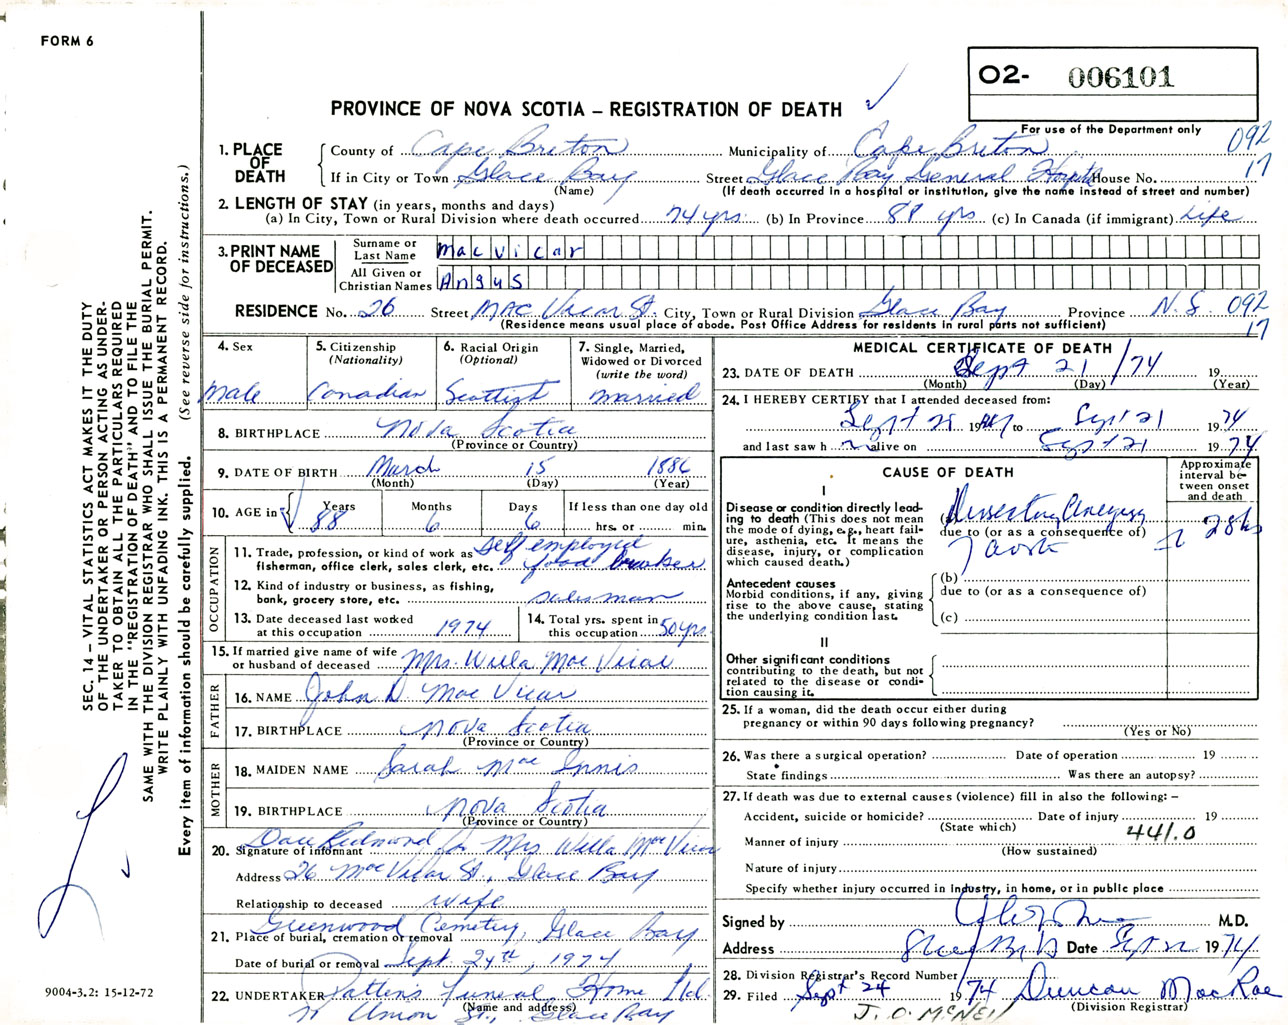 FORM 6
O2- 006101
PROVINCE OF NOVA SCOTIA – REGISTRATION OF DEATH
For use of the Department only
092
17
1. PLACE OF DEATH
County of Cape Breton Municipality of Cape Breton
If in City or Town Glace Bay Street Glace Bay General Hospital House No.
(Name) (If death occurred in a hospital or institution, give the name instead of street and number)
2. LENGTH OF STAY (in years, months and days)
(a) In City, Town or Rural Division where death occurred 74 yrs. (b) In Province 88 yrs (c) In Canada (if immigrant) Life
3. PRINT NAME OF DECEASED
Surname or Last Name MacVicar
All Given or Christian Names Angus
RESIDENCE No. 26 Street MacVicar St. City, Town or Rural Division Glace Bay Province N.S. 092
(Residence means usual place of abode. Post Office Address for residents in rural parts not sufficient) 17
4. Sex
Male
5. Citizenship
(Nationality)
Canadian
6. Racial Origin
(Optional)
Scottish
7. Single, Married, Widowed or Divorced
(write the word)
married
8. BIRTHPLACE Nova Scotia
(Province or Country)
9. DATE OF BIRTH March 15 1886
(Month) (Day) (Year)
10. AGE in Years Months Days If less than one day old
88 6 6 hrs. or min.
OCCUPATION
11. Trade, profession, or kind of work as self employed
fisherman, office clerk, sales clerk, etc. food broker
12. Kind of industry or business, as fishing,
bank, grocery store, etc. salesman
13. Date deceased last worked
at this occupation 1974
14. Total yrs. spent in
this occupation 50 yrs.
15. If married give name of wife
or husband of deceased Mrs. Willa MacVicar
FATHER
16. NAME John D. MacVicar
17. BIRTHPLACE Nova Scotia
(Province or Country)
MOTHER
18. MAIDEN NAME Sarah MacInnis
19. BIRTHPLACE Nova Scotia
(Province or Country)
20. Signature of informant Dave Redmond for Mrs Willa MacVicar
Address 26 MacVicar St., Glace Bay
Relationship to deceased wife
21. Place of burial, cremation or removal Greenwood Cemetery, Glace Bay
Date of burial or removal Sept. 24th, 1974
22. UNDERTAKER Patten's Funeral Home Ltd.
(Name and address)
Union St., Glace Bay
MEDICAL CERTIFICATE OF DEATH
23. DATE OF DEATH Sept 21 /74 19
(Month) (Day) (Year)
24. I HEREBY CERTIFY that I attended deceased from:
Sept 19 to Sept 21 1974
and last saw h alive on Sept 21 1974
CAUSE OF DEATH
Approximate interval between onset and death
I
Disease or condition directly leading to death (This does not mean the mode of dying, e.g., heart failure, asthenia, etc. It means the disease, injury, or complication which caused death.)
(a) Dissecting Aneurysm
due to (or as a consequence of)
of Aorta
28 hrs
Antecedent causes
Morbid conditions, if any, giving rise to the above cause, stating the underlying condition last.
(b)
due to (or as a consequence of)
(c)
II
Other significant conditions
contributing to the death, but not related to the disease or condition causing it.
25. If a woman, did the death occur either during
pregnancy or within 90 days following pregnancy?
(Yes or No)
26. Was there a surgical operation? Date of operation 19
State findings Was there an autopsy?
27. If death was due to external causes (violence) fill in also the following: –
Accident, suicide or homicide? Date of injury 19
(State which)
441.0
Manner of injury
(How sustained)
Nature of injury
Specify whether injury occurred in Industry, in home, or in public place
Signed by M.D.
Address Date Sept 1974
28. Division Registrar's Record Number
29. Filed Sept 24 1974 Duncan MacRae
(Division Registrar)
J. O. McNeil
SEC. 14 – VITAL STATISTICS ACT MAKES IT THE DUTY
OF THE UNDERTAKER OR PERSON ACTING AS UNDER-
TAKER TO OBTAIN ALL THE PARTICULARS REQUIRED
IN THE "REGISTRATION OF DEATH" AND TO FILE THE
SAME WITH THE DIVISION REGISTRAR WHO SHALL ISSUE THE BURIAL PERMIT.
WRITE PLAINLY WITH UNFADING INK. THIS IS A PERMANENT RECORD.
Every item of information should be carefully supplied. (See reverse side for instructions.)
9004-3.2: 15-12-72